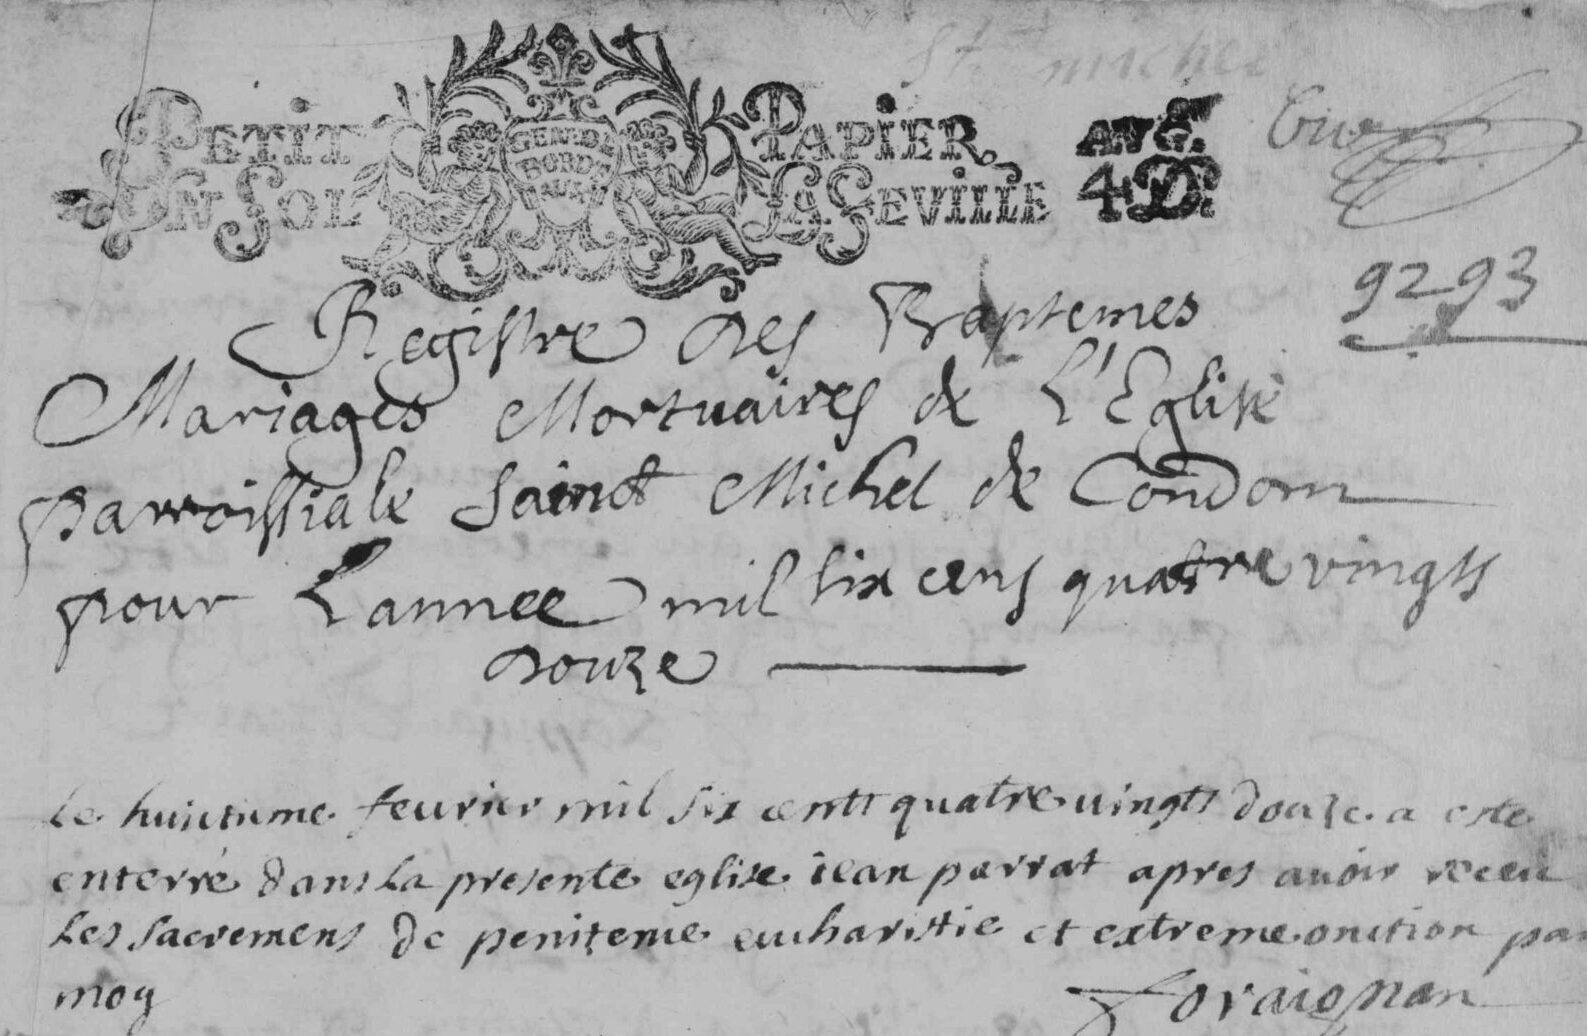 St michel
PETIT PAPIER AVG.
UN SOL LA FEVILLE 4 D.
GEN. DE
BORD
9293
Registre des Baptemes
Mariages Mortuaires de L'Eglise
parroissiale sainct Michel de Condom
pour Lannee mil six cens quatre vingts
douze
Le huictieme feurier mil six cents quatre uingts douze a este
enterré dans la presente eglise iean parrat apres auoir receu
les sacremens de penitence eucharistie et extreme onction par
moy
Foraignan